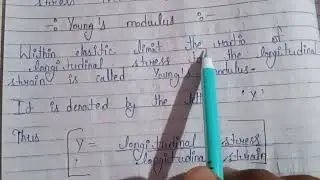 stress
: Young's modulus :
Within elastic limit the ratio of
longitudinal stress to the longitudinal
strain is called Young's modulus.
It is denoted by the 'Y'
Thus
Y = longitudinal stress
longitudinal strain